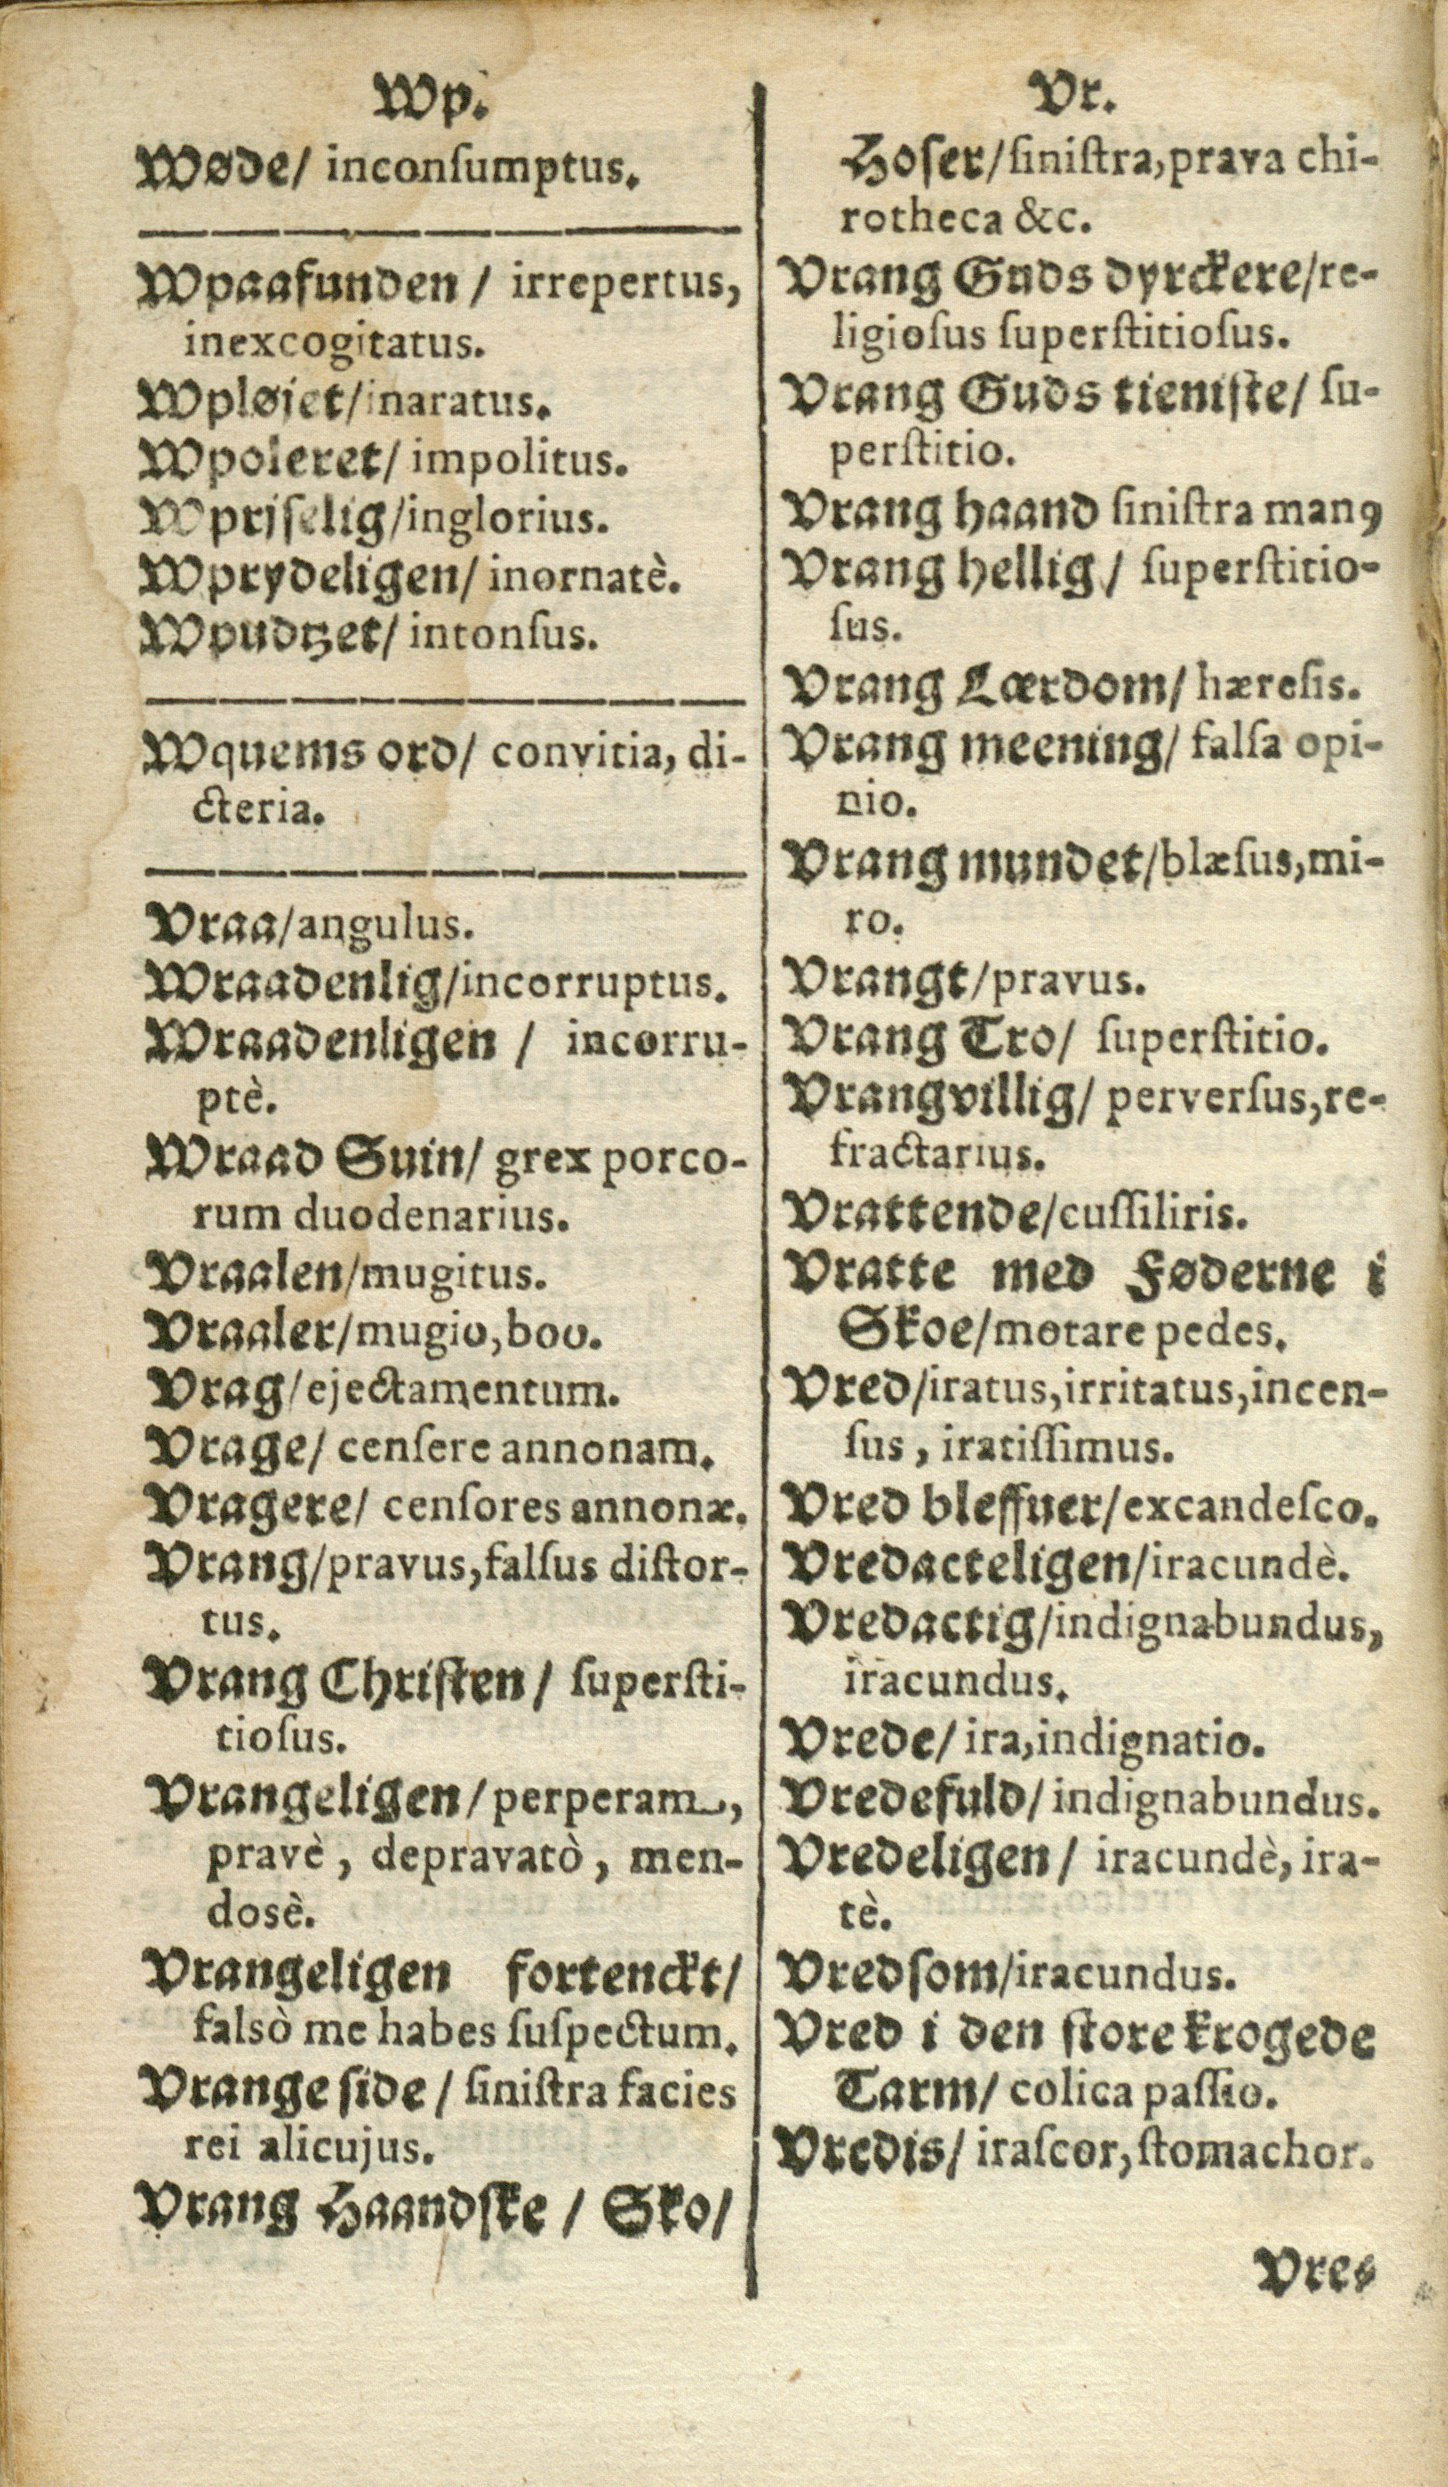 Wp.
Wøde/ inconſumptus.
Wpaafunden / irrepertus,
inexcogitatus.
Wpløjet/inaratus.
Wpoleret/ impolitus.
Wprjſelig/inglorius.
Wprydeligen/ inornatè.
Wpudtzet/ intonſus.
Wquems ord/ convitia, di-
cteria.
Vraa/angulus.
Wraadenlig/incorruptus.
Wraadenligen / incorru-
ptè.
Wraad Suin/ grex porco-
rum duodenarius.
Vraalen/mugitus.
Vraaler/mugio,boo.
Vrag/ejectamentum.
Vrage/ cenſere annonam.
Vragere/ cenſores annonæ.
Vrang/pravus,falſus diſtor-
tus.
Vrang Chriſten / ſuperſti-
tioſus.
Vrangeligen/ perperam,
pravè, depravatò, men-
dosè.
Vrangeligen fortenckt/
falsò me habes ſuſpectum.
Vrange ſide / ſiniſtra facies
rei alicujus.
Vrang Haandſke / Sko/
Vr.
Hoſer/ſiniſtra,prava chi-
rotheca &c.
Vrang Guds dyrckere/re-
ligioſus ſuperſtitioſus.
Vrang Guds tieniſte/ ſu-
perſtitio.
Vrang haand ſiniſtra manꝰ
Vrang hellig/ ſuperſtitio-
ſus.
Vrang Lærdom/ hæreſis.
Vrang meening/ falſa opi-
nio.
Vrang mundet/blæſus,mi-
ro.
Vrangt/pravus.
Vrang Tro/ ſuperſtitio.
Vrangvillig/ perverſus,re-
fractarius.
Vrattende/cuſſiliris.
Vratte med Føderne i
Skoe/motare pedes.
Vred/iratus,irritatus,incen-
ſus, iratiſſimus.
Vred bleffuer/excandeſco.
Vredacteligen/iracundè.
Vredactig/indignabundus,
iracundus.
Vrede/ ira,indignatio.
Vredefuld/ indignabundus.
Vredeligen/ iracundè, ira-
tè.
Vredſom/iracundus.
Vred i den ſtore krogede
Tarm/ colica paſſio.
Vredis/ iraſcor,ſtomachor.
Vres